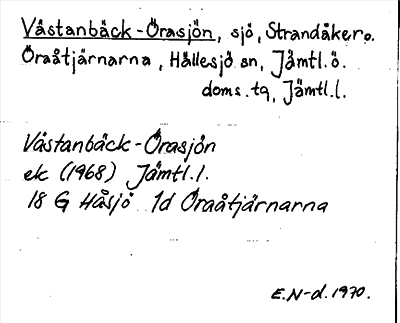 Västanbäck-Örasjön, sjö, Strandåkero.
Öraåtjärnarna, Hällesjö sn, Jämtl.ö.
doms.tg, Jämtl.l.
Västanbäck-Örasjön
ek (1968) Jämtl.l.
18 G Håsjö 1d Öraåtjärnarna
E.N-d.1970.